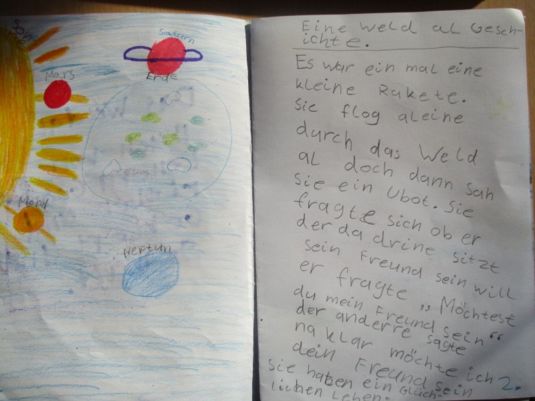 Sonn
Mars
Saturn
Erde
Mond
Neptun
Eine Weld al Gesch-
ichte.
Es war ein mal eine
kleine Rakete.
Sie flog aleine
durch das Weld
al doch dann sah
Sie ein Ubot. Sie
fragte sich ob er
der da drine sitzt
sein Freund sein will
er fragte „Möchtest
du mein Freund sein"
der anderre sagte
na klar möchte ich
dein Freund sein
sie haben ein Glück-
lichen Leben
2.